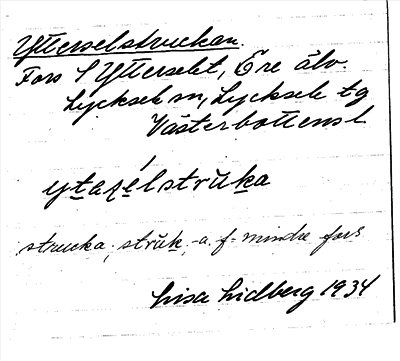 Ytterselstruckan.
Fors S Ytterselet, Öre älv.
Lycksele sn, Lycksele tg
Västerbottens l
ytazélstrŭka
strucka; strŭk, -a. f= mindre fors
Lisa Lidberg 1934